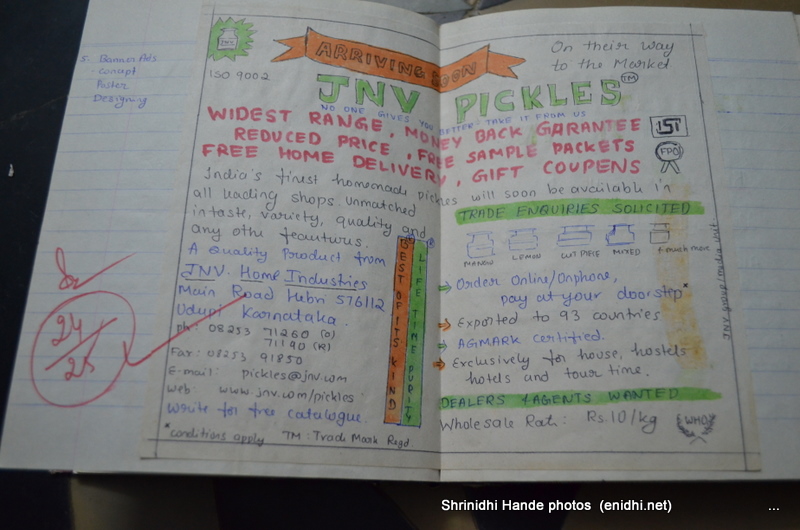 5. Banner Ads
- concept
Poster
Designing
24/25
ISO 9002
ARRIVING SOON
On their way
to the Market
JNV PICKLES™
NO ONE GIVES YOU BETTER. TAKE IT FROM US
WIDEST RANGE, MONEY BACK GARANTEE
REDUCED PRICE, FREE SAMPLE PACKETS
FREE HOME DELIVERY, GIFT COUPENS
ISI
FPO
India's finest homemade pickles will soon be available in
all leading shops unmatched
in taste, variety, quality and
any othe feautures.
A Quality Product from
JNV. Home Industries
Main Road Hebri 576112
Udupi Karnataka.
Ph: 08253 71260 (O)
71190 (R)
Fax: 08253 91850
E-mail: pickles@jnv.com
Web: www.jnv.com/pickles
Write for free catalogue.
*conditions apply TM: Trade Mark Regd
BEST OF ITS KIND
LIFE-TIME PURITY
TRADE ENQUIRIES SOLICITED
MANGO LEMON CUT PIECE MIXED & much more
Order Online/Onphone,
pay at your doorstep*
Exported to 93 countries
AGMARK certified.
Exclusively for house, hostels
hotels and tour time.
DEALERS & AGENTS WANTED
Wholesale Rate: Rs.10/kg
WHO
Shrinidhi Hande photos (enidhi.net) ...